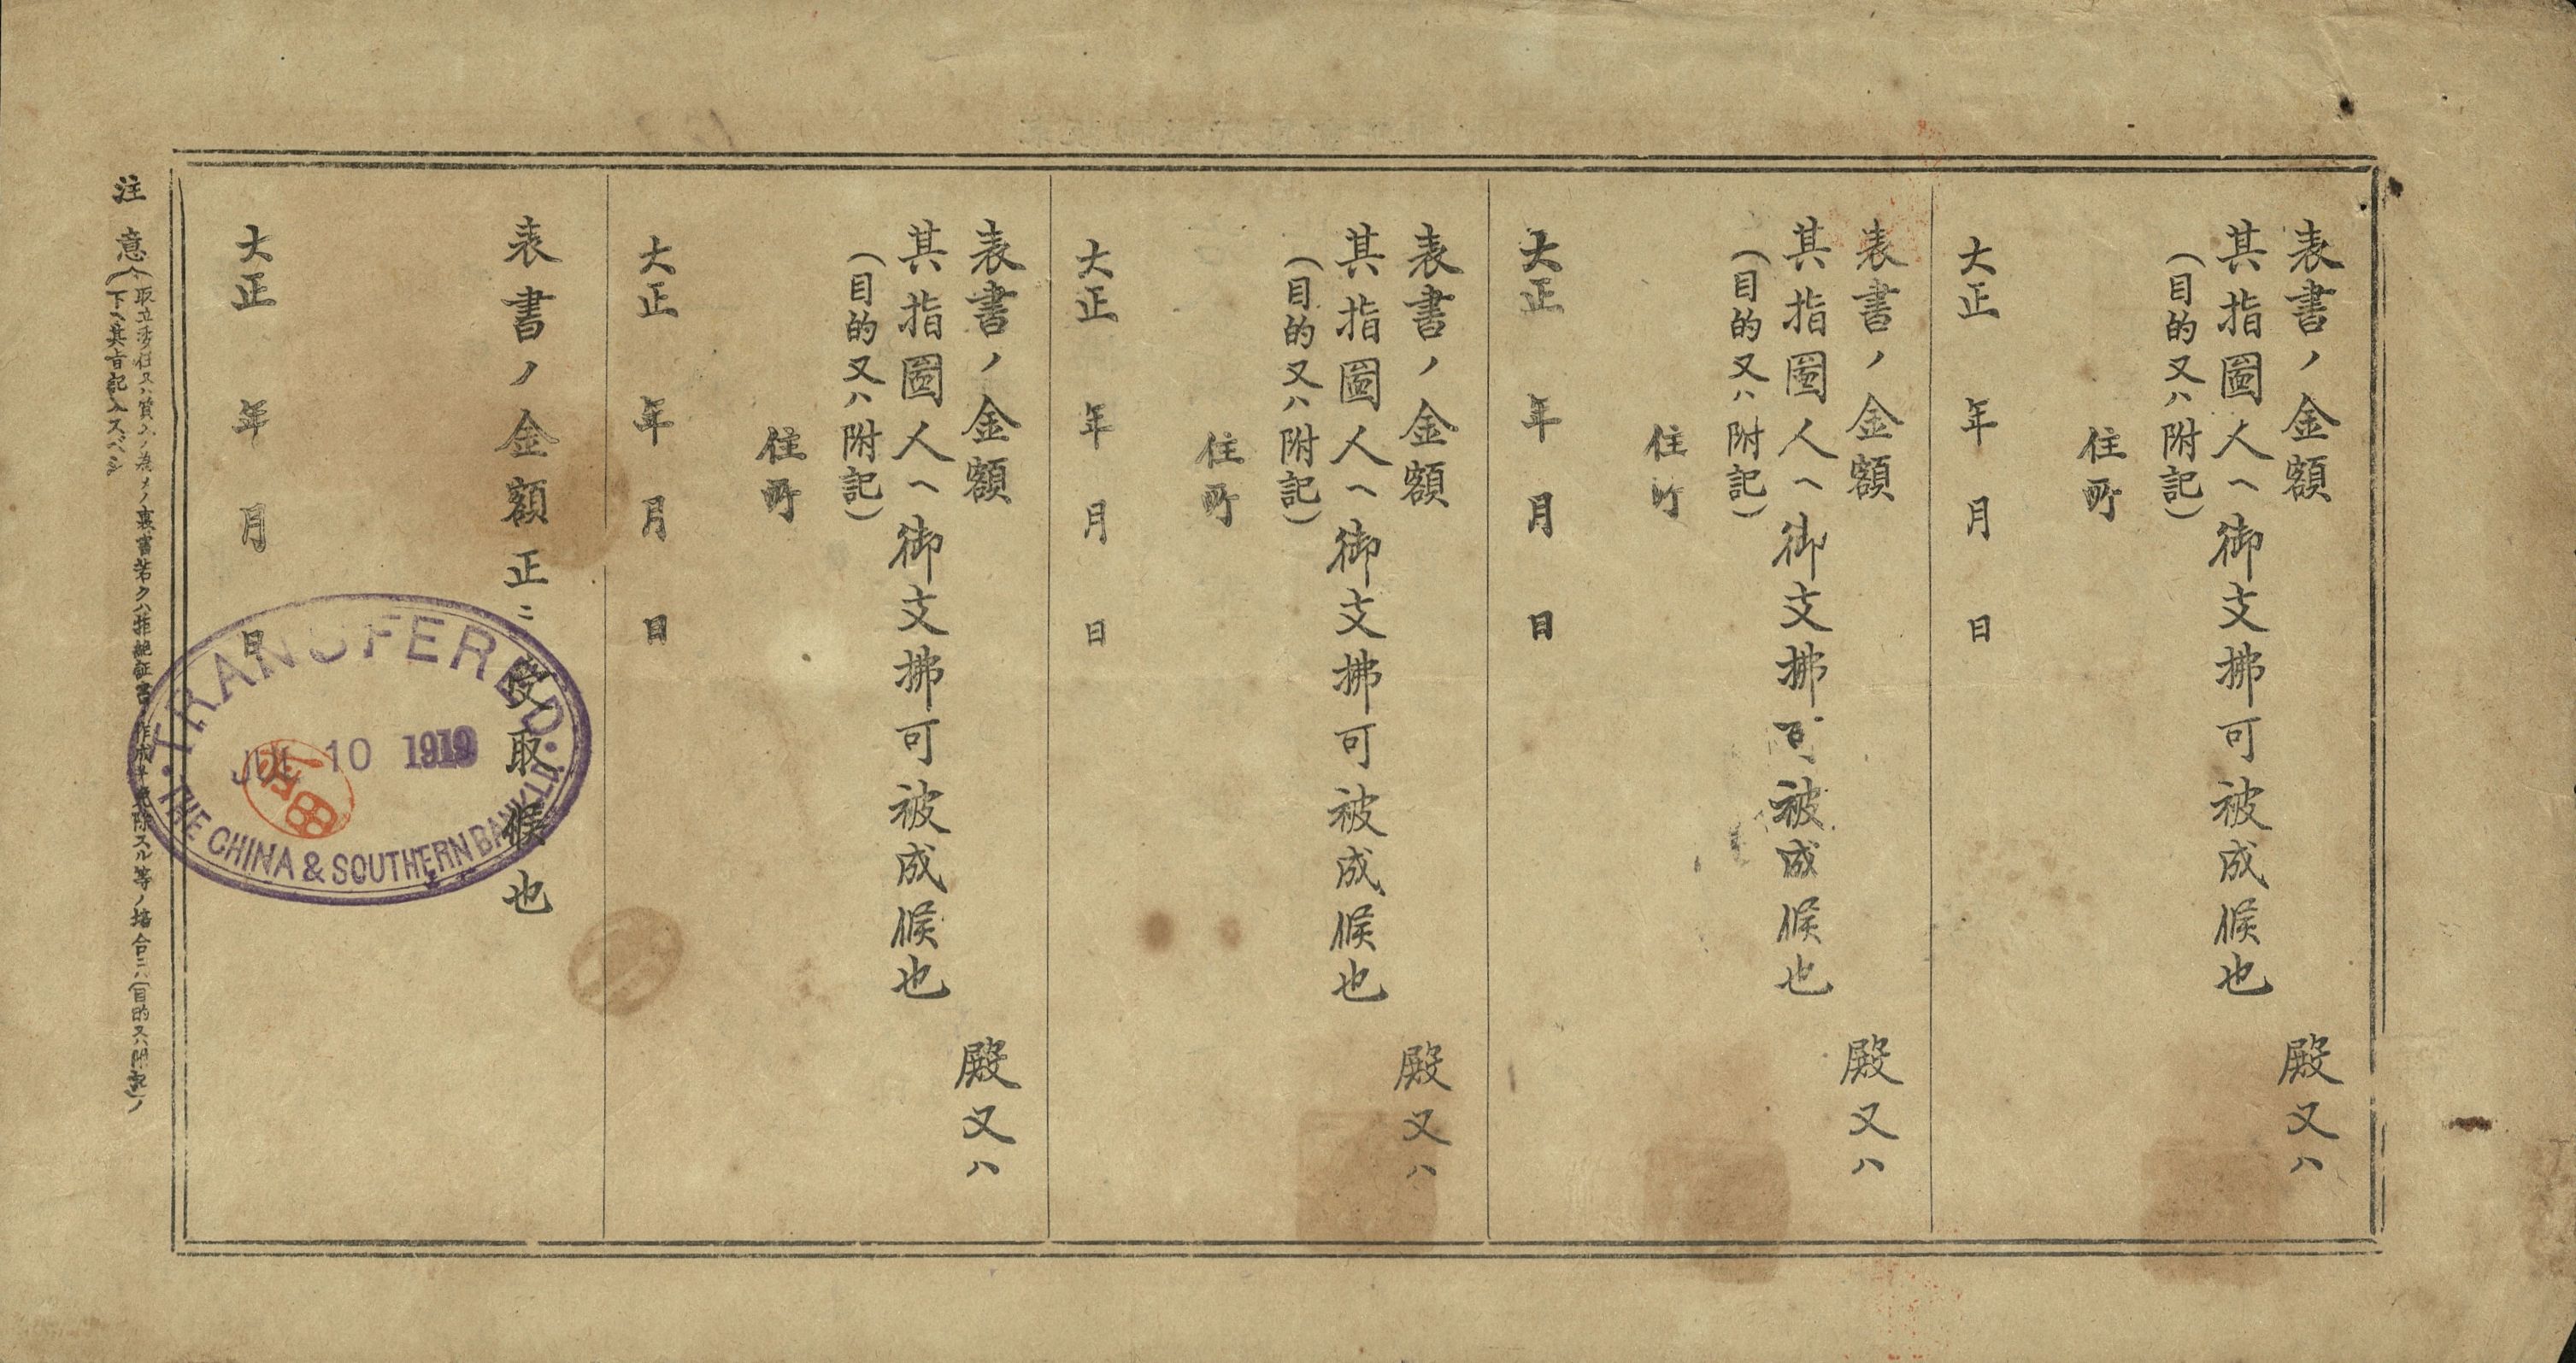 表書ノ金額
殿又ハ
其指圖人ヘ御支拂可被成候也
(目的又ハ附記)
住所
大正 年 月 日
表書ノ金額
殿又ハ
其指圖人ヘ御支拂可被成候也
(目的又ハ附記)
住所
大正 年 月 日
表書ノ金額
殿又ハ
其指圖人ヘ御支拂可被成候也
(目的又ハ附記)
住所
大正 年 月 日
表書ノ金額
殿又ハ
其指圖人ヘ御支拂可被成候也
(目的又ハ附記)
住所
大正 年 月 日
表書ノ金額正ニ受取候也
大正 年 月 日
TRANSFERED.
JUL 10 1919
THE CHINA & SOUTHERN BANK LTD.
注意
取立委任又ハ質入ノ為メノ裏書若クハ拒絶証書ノ作成ヲ免除スル等ノ場合ニハ(目的又ハ附記)ノ
下ヘ其旨記入スベシ